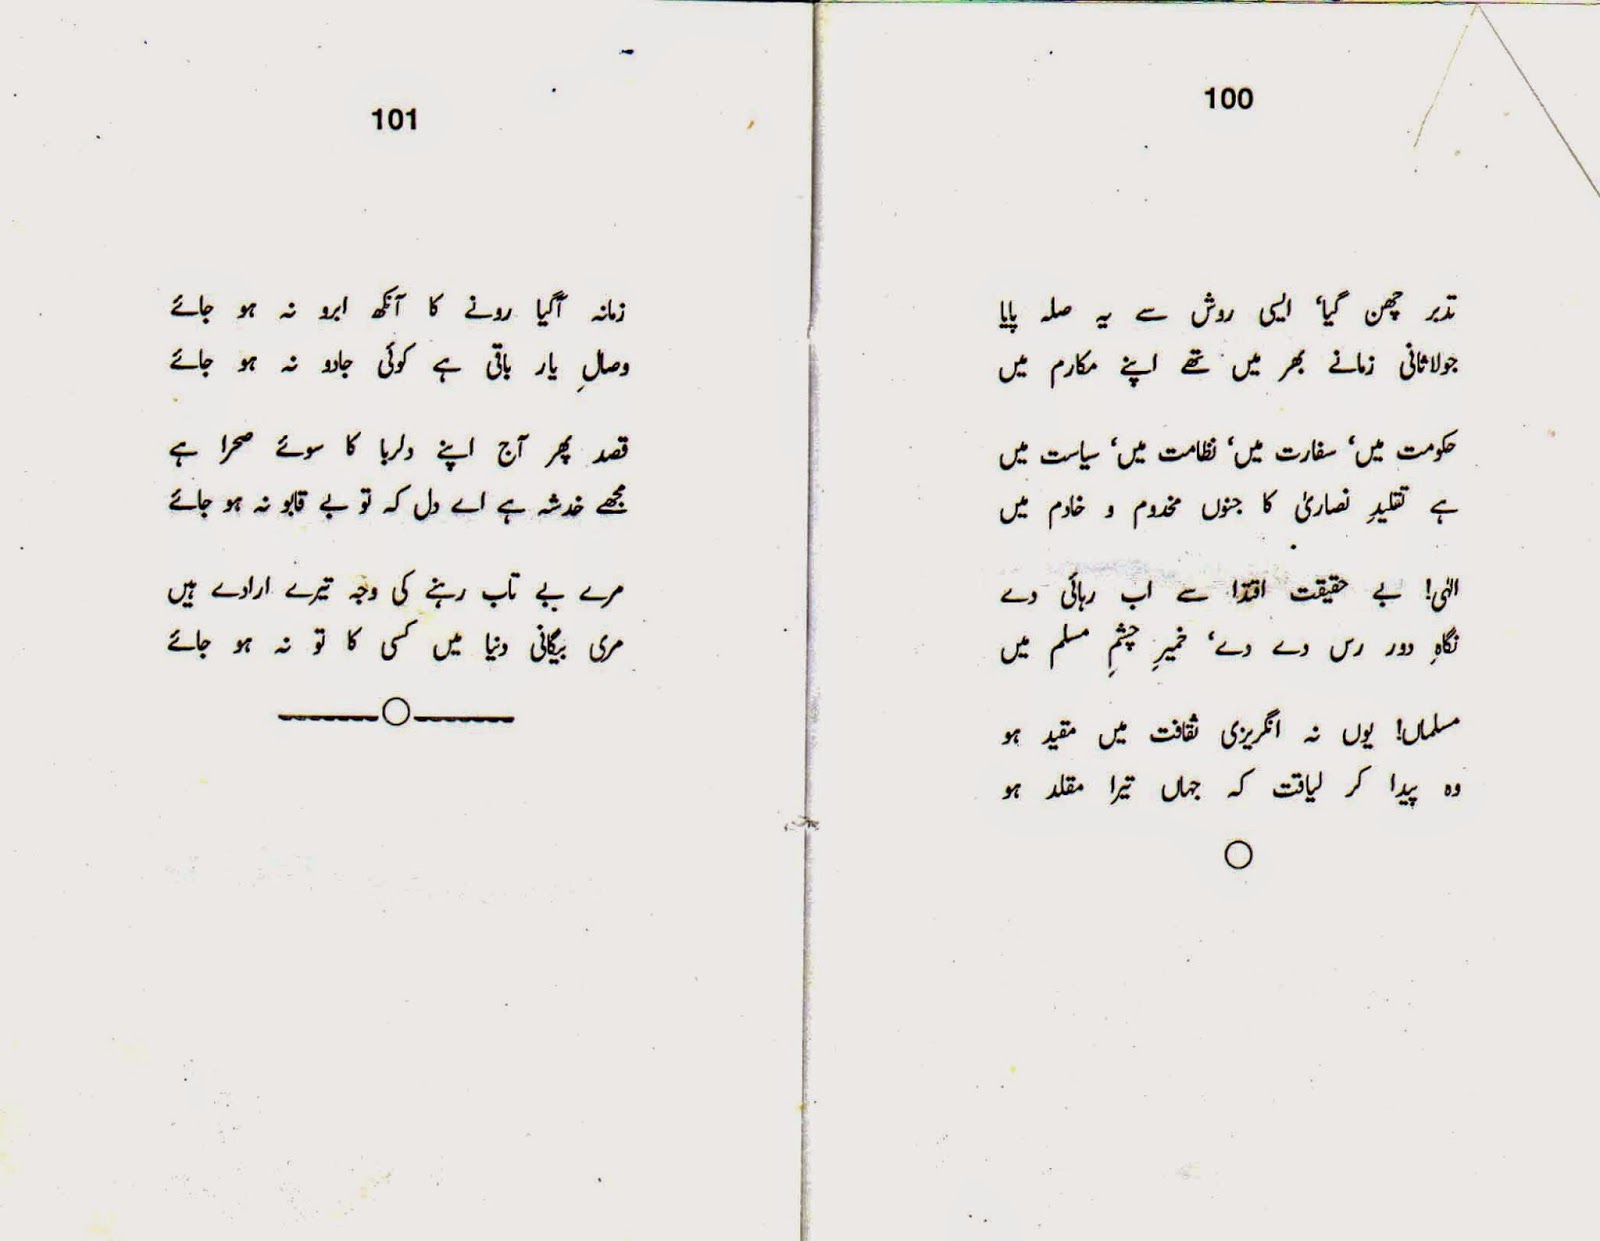 100
تدبر چھن گیا، ایسی روش سے یہ صلہ پایا
جولاثانی زمانے بھر میں تھے اپنے مکارم میں
حکومت میں، سفارت میں، نظامت میں، سیاست میں
ہے تقلیدِ نصاریٰ کا جنوں مخدوم و خادم میں
الٰہی! بے حقیقت اقتدا سے اب رہائی دے
نگاہِ دور رس دے دے، خمیرِ چشمِ مسلم میں
مسلماں! یوں نہ انگریزی ثقافت میں مقید ہو
وہ پیدا کر لیاقت کہ جہاں تیرا مقلد ہو
101
زمانہ آگیا رونے کا آنکھ ابرو نہ ہو جائے
وصالِ یار باقی ہے کوئی جادو نہ ہو جائے
قصد پھر آج اپنے دلربا کا سوئے صحرا ہے
مجھے خدشہ ہے اے دل کہ تو بے قابو نہ ہو جائے
مرے بے تاب رہنے کی وجہ تیرے ارادے ہیں
مری بیگانی دنیا میں کسی کا تو نہ ہو جائے